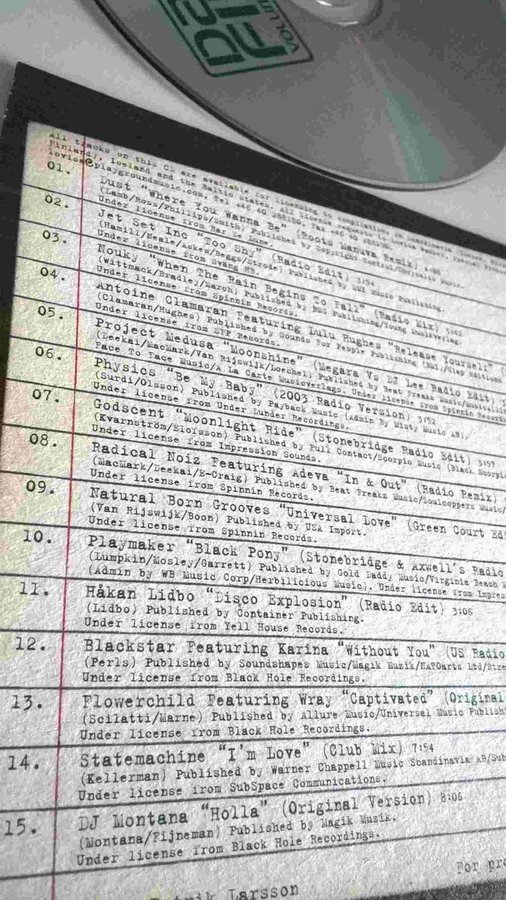 VOLUM
All tracks on this CD are available for licensing to
Finland), Iceland and the Baltic states. All
lovisa@playgroundmusic.com, Tel
01. Dust "Where You Wanna Be" (Roots Manuva Remix)
(Lamb/Ross/Phillips/Smith) Published by Copyright Control/
Under license from
02. Jet Set Inc "Too Shy" (Radio Edit) 3:54
(Hamill/Neale/Askew/Beggs/Strode) Published by Publishing.
Under license from
03. Nouky "When The Rain Begins To Fall" (Radio Mix)
(Wittmack/Bradley/March) Published by
Under license from Spinnin Records.
04. Antoine Clamaran Featuring Lulu Hughes "Release Yourself"
(Clamaran/Hughes) Published by Sounds For People Publishing
Under license from Records.
05. Project Medusa "Moonshine" (Megara Vs DJ Lee Radio Edit)
(Deekai/MacMark/Van Rijswijk/Loechel) Published by Beat Freakz
Face To Face Music/A La Carte Musicverlags. Under license from Spinnin Records
06. Physics "Be My Baby" (2003 Radio Version) 3:52
(Surdi/Olsson) Published by Payback Music (Admin By
Under license from Under Records.
07. Godscent "Moonlight Ride" (Stonebridge Radio Edit)
(Kvarnström/Elofsson) Published by Full Contact/Scorpio Music (Black Scorpio
Under license from Impression Sounds.
08. Radical Noiz Featuring Adeva "In & Out" (Radio Remix)
(MacMark/Deekai/E-Craig) Published by Beat Freakz Music/Soulcoppers Music/
Under license from Spinnin Records.
09. Natural Born Grooves "Universal Love" (Green Court Ed
(Van Rijswijk/Boon) Published by USA Import.
Under license from Spinnin Records.
10. Playmaker "Black Pony" (Stonebridge & Axwell's Radio
(Lumpkin/Mosley/Garrett) Published by Gold Daddy Music/Virginia Beach
(Admin by WB Music Corp/Herbilicious Music). Under license from Impres
11. Håkan Lidbo "Disco Explosion" (Radio Edit) 3:06
(Lidbo) Published by Container Publishing.
Under license from Yell House Records.
12. Blackstar Featuring Karina "Without You" (US Radio
(Perls) Published by Soundshapes Music/Magik Muzik/HAPOarts Ltd/Stre
Under license from Black Hole Recordings.
13. Flowerchild Featuring Wray "Captivated" (Original
(Scilatti/Marne) Published by Allure Music/Universal Music Publish
Under license from Black Hole Recordings.
14. Statemachine "I'm Love" (Club Mix) 7:54
(Kellerman) Published by Warner Chappell Music Scandinavia AB/Sub
Under license from SubSpace Communications.
15. DJ Montana "Holla" (Original Version) 8:06
(Montana/Fijneman) Published by Magik Muzik.
Under license from Black Hole Recordings.
Larsson
For pro